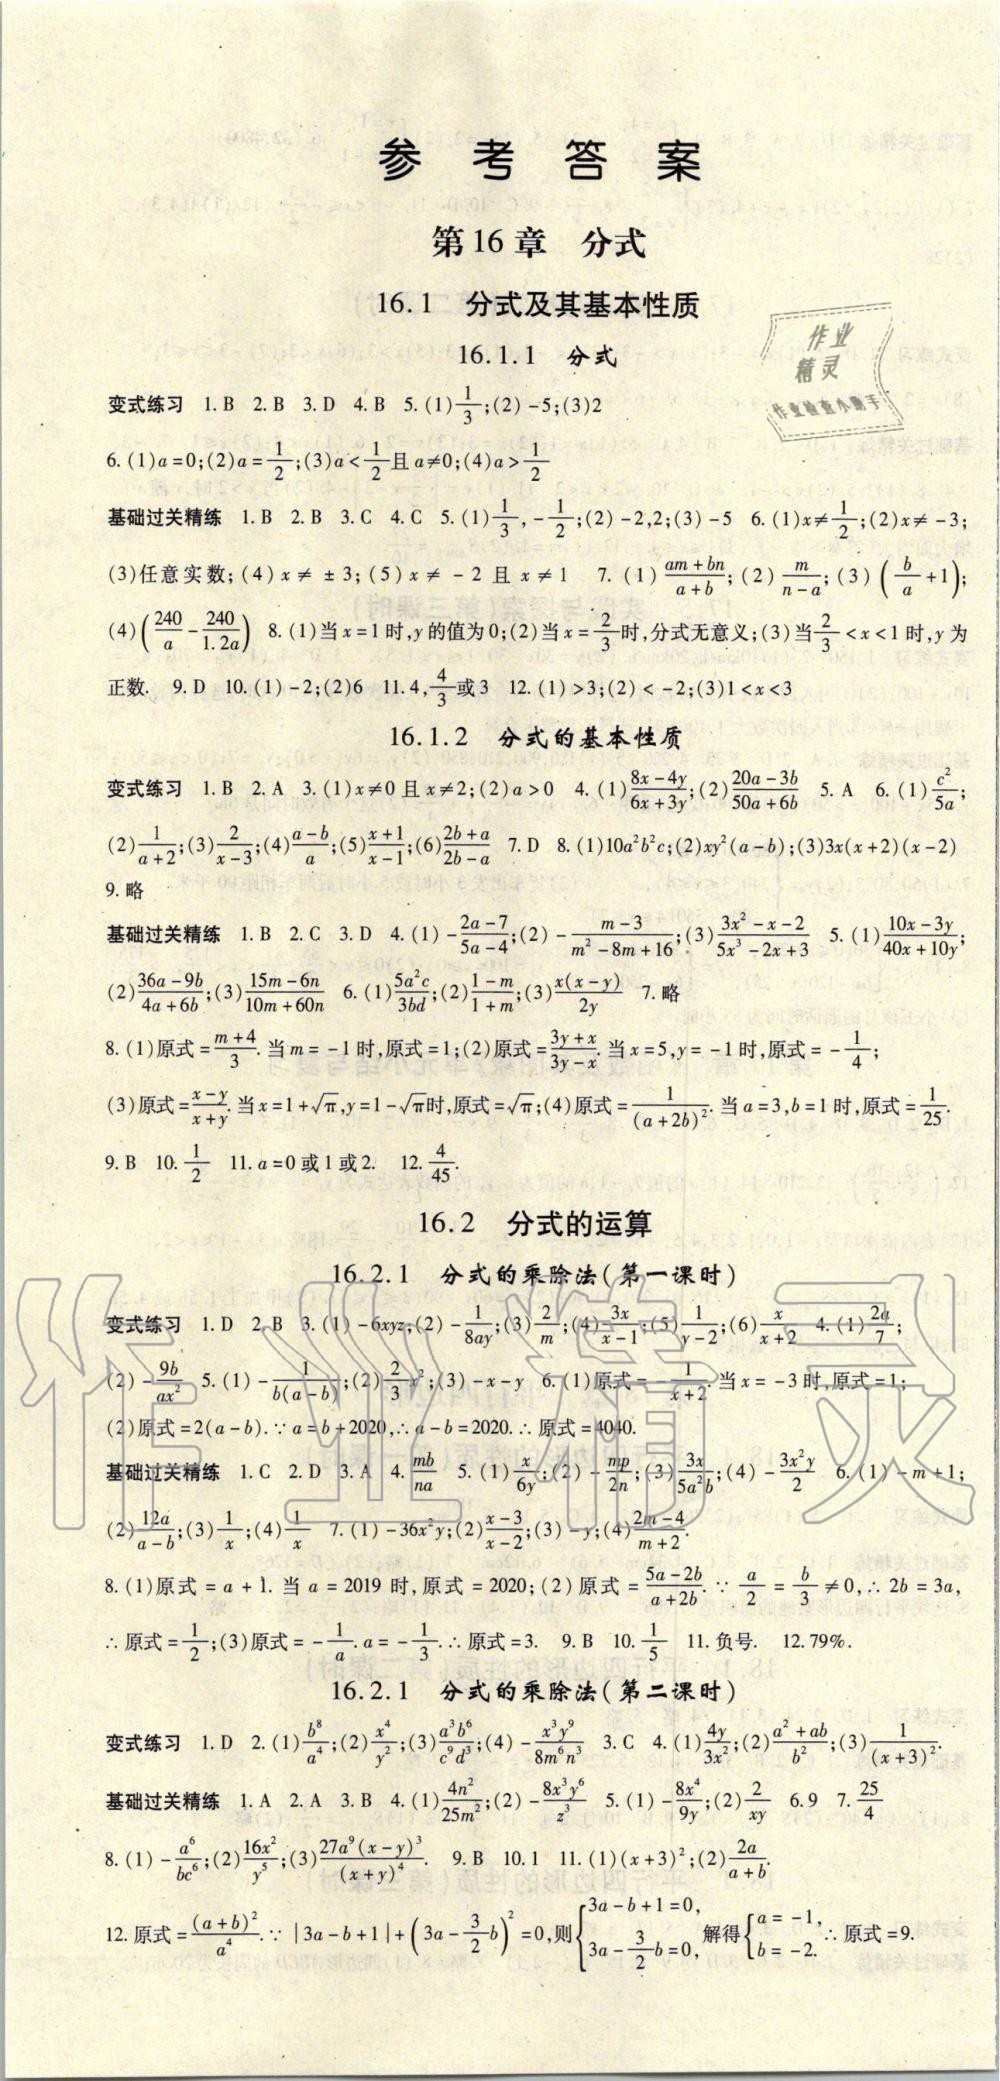 参考答案
第16章 分式
16.1 分式及其基本性质
16.1.1 分式
作业
精灵
作业检查小助手
变式练习 1.B 2.B 3.D 4.B 5.(1)1/3;(2)-5;(3)2
6.(1)a=0;(2)a=1/2;(3)a<1/2且a≠0;(4)a>1/2
基础过关精练 1.B 2.B 3.C 4.C 5.(1)1/3,-1/2;(2)-2,2;(3)-5 6.(1)x≠1/2;(2)x≠-3;
(3)任意实数;(4)x≠±3;(5)x≠-2且x≠1 7.(1)(am+bn)/(a+b);(2)m/(n-a);(3)(b/a+1);
(4)(240/a-240/1.2a) 8.(1)当x=1时,y的值为0;(2)当x=2/3时,分式无意义;(3)当2/3<x<1时,y为
正数. 9.D 10.(1)-2;(2)6 11.4,4/3或3 12.(1)>3;(2)<-2;(3)1<x<3
16.1.2 分式的基本性质
变式练习 1.B 2.A 3.(1)x≠0且x≠2;(2)a>0 4.(1)(8x-4y)/(6x+3y);(2)(20a-3b)/(50a+6b) 5.A 6.(1)c²/5a;
(2)1/(a+2);(3)2/(x-3);(4)(a-b)/a;(5)(x+1)/(x-1);(6)(2b+a)/(2b-a) 7.D 8.(1)10a²b²c;(2)xy²(a-b);(3)3x(x+2)(x-2)
9.略
基础过关精练 1.B 2.C 3.D 4.(1)-(2a-7)/(5a-4);(2)-(m-3)/(m²-8m+16);(3)(3x²-x-2)/(5x³-2x+3) 5.(1)(10x-3y)/(40x+10y);
(2)(36a-9b)/(4a+6b);(3)(15m-6n)/(10m+60n) 6.(1)5a²c/3bd;(2)(1-m)/(1+m);(3)x(x-y)/2y 7.略
8.(1)原式=(m+4)/3.当m=-1时,原式=1;(2)原式=(3y+x)/(3y-x).当x=5,y=-1时,原式=-1/4;
(3)原式=(x-y)/(x+y).当x=1+√π,y=1-√π时,原式=√π;(4)原式=1/(a+2b)².当a=3,b=1时,原式=1/25.
9.B 10.1/2 11.a=0或1或2. 12.4/45.
16.2 分式的运算
16.2.1 分式的乘除法(第一课时)
变式练习 1.D 2.B 3.(1)-6xyz;(2)-1/8ay;(3)2/m;(4)3x/(x-1);(5)1/(y-2);(6)x/(x+2) 4.(1)2a/7;
(2)-9b/ax² 5.(1)-1/b(a-b);(2)2/3x²;(3)-x-y 6.(1)原式=-1/(x+2).当x=-3时,原式=1;
(2)原式=2(a-b).∵a=b+2020,∴a-b=2020.∴原式=4040.
基础过关精练 1.C 2.D 3.A 4.mb/na 5.(1)x/6y;(2)-mp/2n;(3)3x/5a²b;(4)-3x²y/2 6.(1)-m+1;
(2)12a/(a-b);(3)1/x;(4)1/x 7.(1)-36x²y;(2)(x-3)/(x-2);(3)-y;(4)(2m-4)/(m+2).
8.(1)原式=a+1.当a=2019时,原式=2020;(2)原式=(5a-2b)/(a+2b).∵a/2=b/3≠0,∴2b=3a,
∴原式=1/2;(3)原式=-1/a.a=-1/3.∴原式=3. 9.B 10.1/5 11.负号. 12.79%.
16.2.1 分式的乘除法(第二课时)
变式练习 1.D 2.(1)b⁸/a⁴;(2)x⁴/y²;(3)a³b⁶/c⁹d³;(4)-x³y⁹/8m⁶n³ 3.C 4.(1)4y/3x²;(2)(a²+ab)/b²;(3)1/(x+3)².
基础过关精练 1.A 2.A 3.B 4.(1)4n²/25m²;(2)-8x³y⁶/z³ 5.(1)-8x⁴/9y;(2)2/xy 6.9 7.25/4
8.(1)-a⁶/bc⁶;(2)16x²/y⁵;(3)27a⁹(x-y)³/(x+y)⁴. 9.B 10.1 11.(1)(x+3)²;(2)2a/(a+b).
12.原式=(a+b)²/a⁴.∵|3a-b+1|+(3a-3/2b)²=0,则{3a-b+1=0,3a-3/2b=0,解得{a=-1,b=-2.∴原式=9.
作业精灵